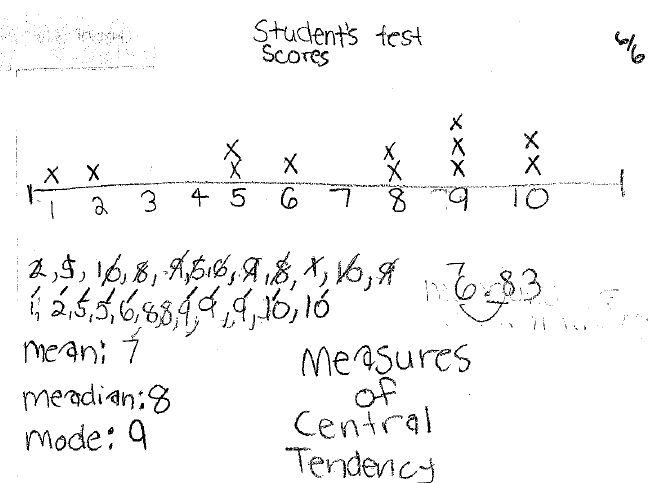 Student's test
Scores
6/6
x x x x x x x x x x x x
1 2 3 4 5 6 7 8 9 10
2, 5, 10, 8, 9, 5, 6, 9, 8, 1, 10, 9
1, 2, 5, 5, 6, 8, 8, 9, 9, 9, 10, 10
7
6.83
mean: 7
meadian: 8
mode: 9
Measures
of
Central
Tendency